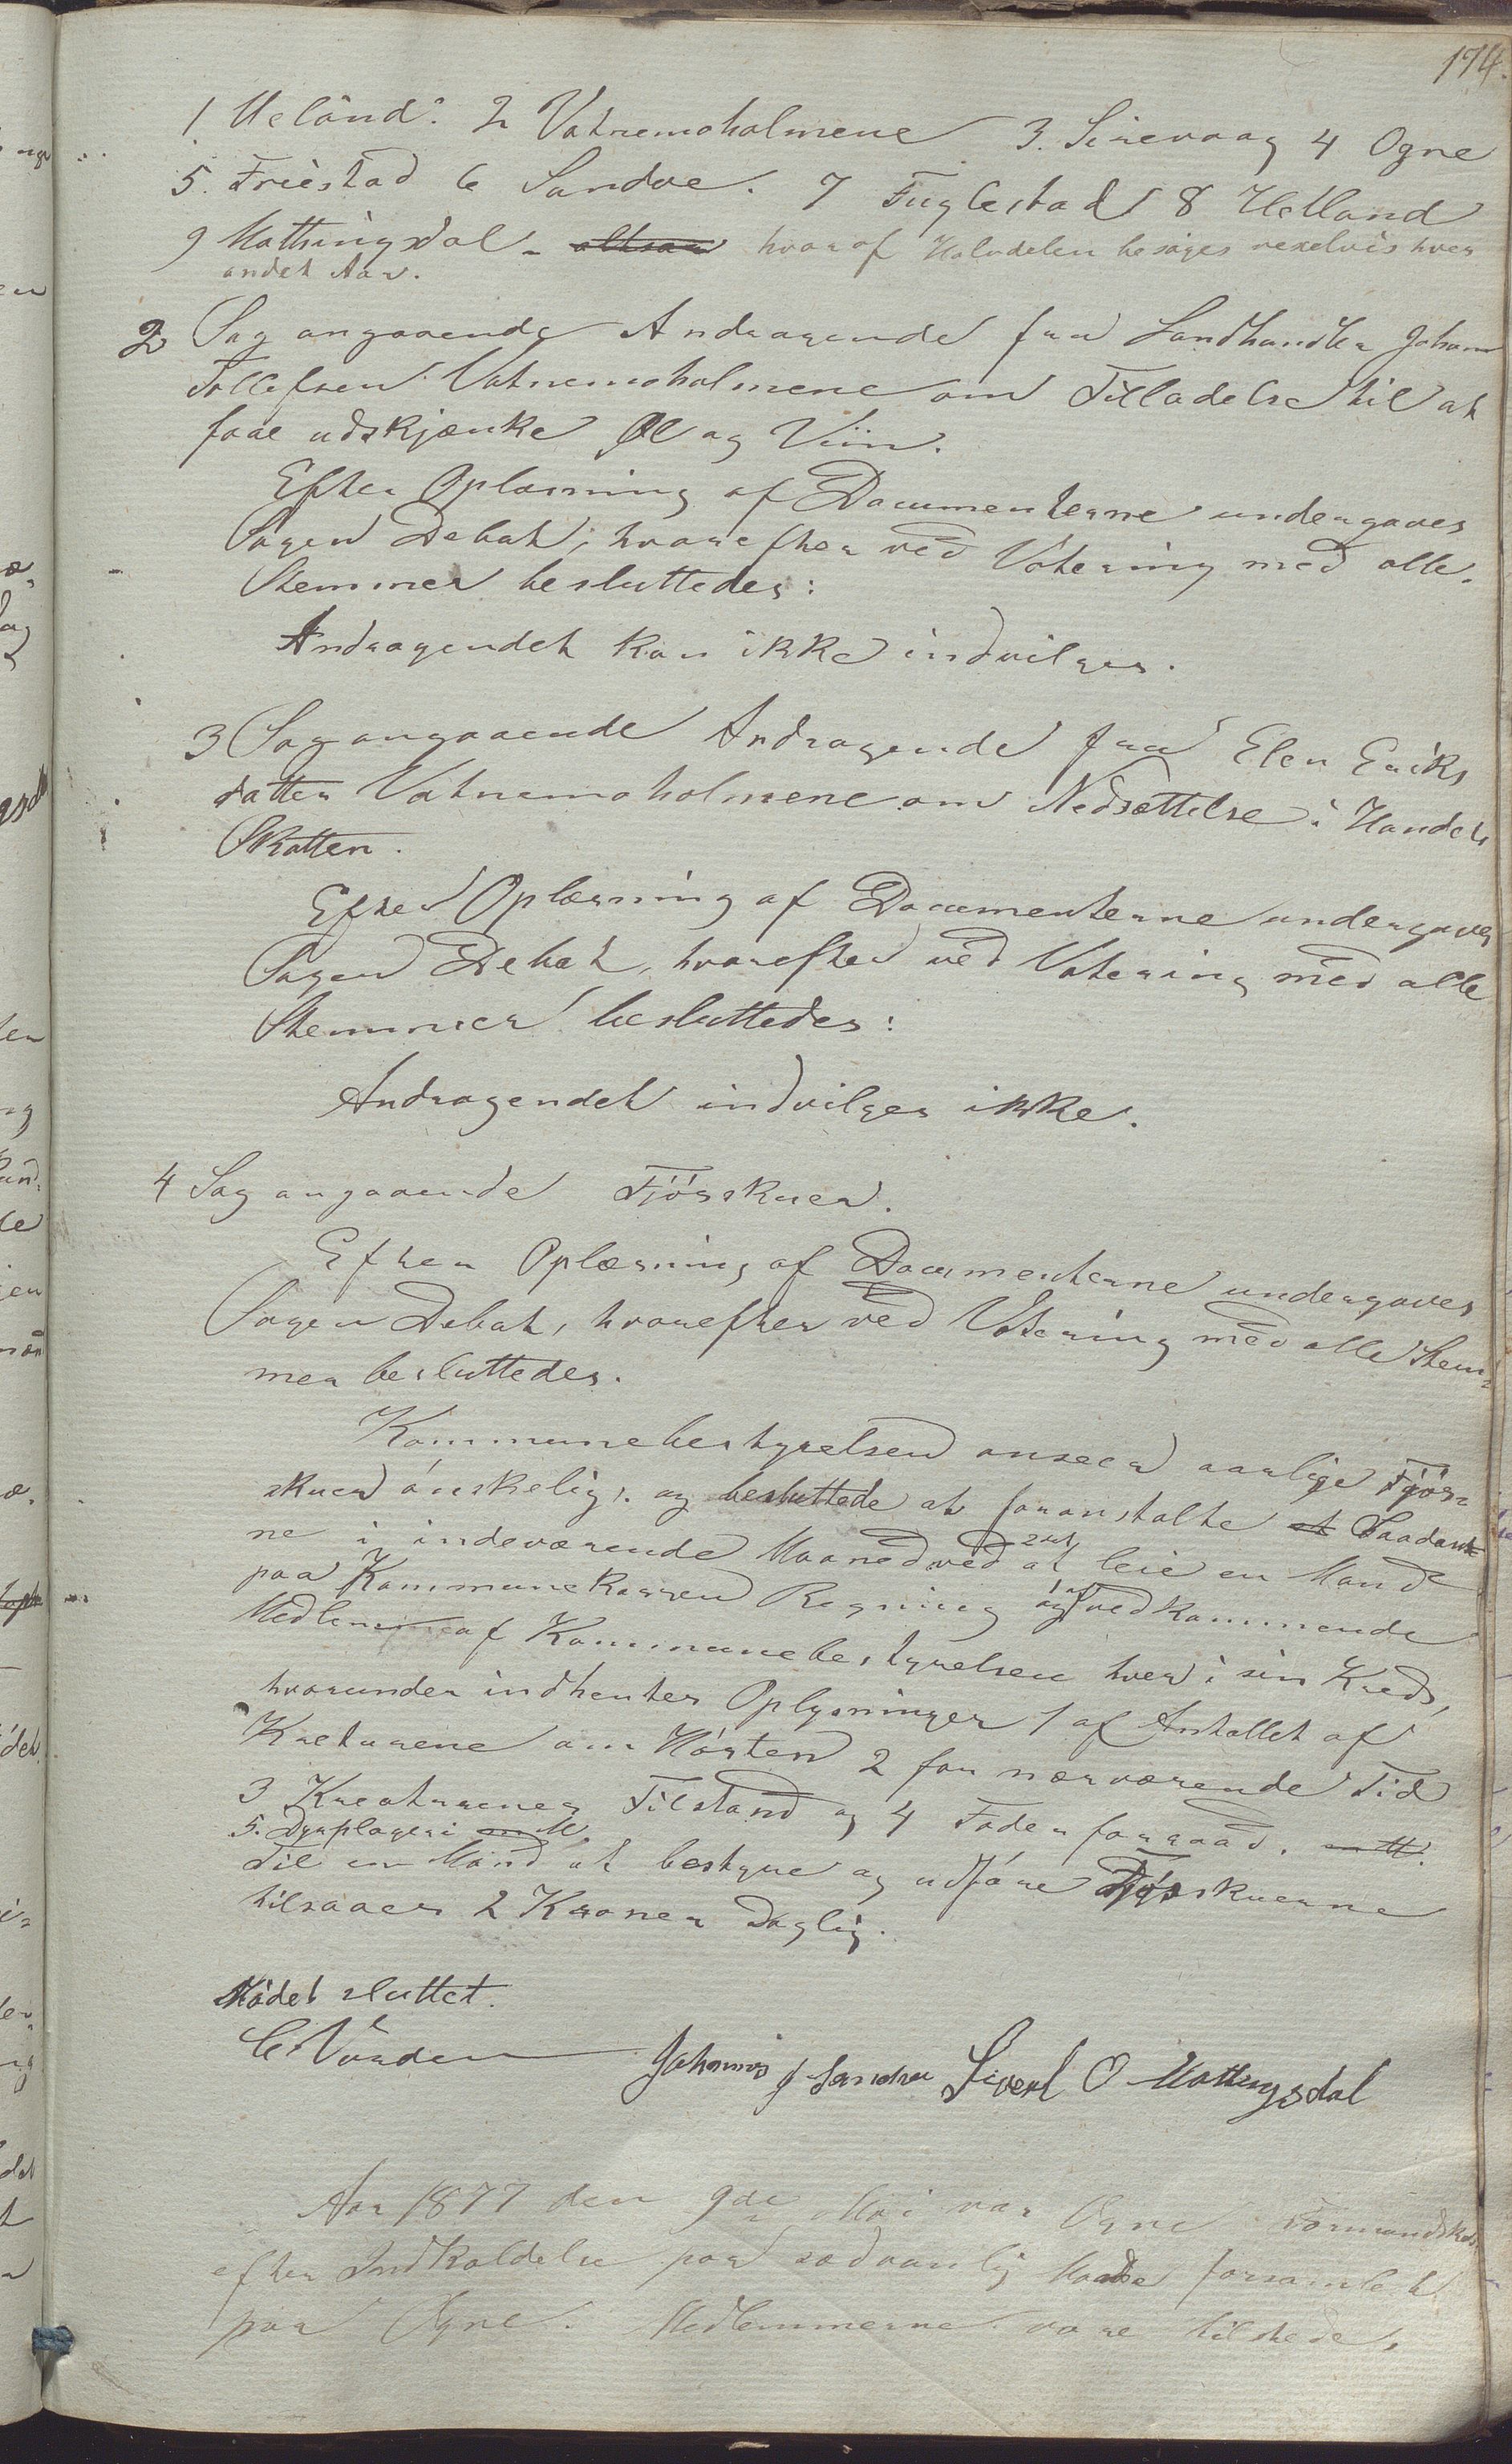 174.
1. Ueland. 2 Vatnemoholmene 3. Sirevaag 4 Ogne
5. Friestad 6 Sandve. 7 Fuglestad 8 Helland
9 Mattingsdal - hvoraf Halvdelen besøges vexelvis hver
andet Aar.
2 Sag angaaende Andragende fra Landhandler Johan
Tollefsen Vatnemoholmene om Tilladelse til at
faae udskjænke Øl og Viin.
Efter Oplæsning af Documenterne undergaves
Sagen Debat; hvorefter ved Votering med alle
Stemmer besluttedes:
Andragendet kan ikke indvilges.
3 Sag angaaende Andragende fra Elen Eriks
datter Vatnemoholmene om Nedsættelse i Handels
Skatten.
Efter Oplæsning af Documenterne undergaves
Sagen Debat, hvorefter ved Votering med alle
Stemmer besluttedes:
Andragendet indvilges ikke.
4 Sag angaaende Fjösskuer.
Efter Oplæsning af Documenterne undergaves
Sagen Debat, hvorefter ved Votering med alle Stem-
mer besluttedes.
Kommunebestyrelsen anseer aarlige Fjös-
skuer ønskelig, og besluttede at foranstalte et Saadant
i indeværende Maaned ved at leie en Mand
paa Kommunekassen Regning og vedkommende
Medlem af Kommunebestyrelsen hver i sin Kreds,
hvorunder indhentes Oplysninger 1 af Antallet af
Kreturene om Høsten 2 for nærværende Tid
3 Kreaturenes Tilstand og 4 Foderforraad.
5. Dyrplageri
Til en Mand at bestyre og udføre Fjøsskuerne
tilsaaes 2 Kroner Daglig.
Mødet sluttet.
Johannis J Sandve Sivert O Mattingsdal
Aar 1877 den 9de Mai var Ogne Formandskab
efter Indkaldelse paa sædvanlig Maade forsamlet
paa Ogne. Medlemmerne vare tilstede,